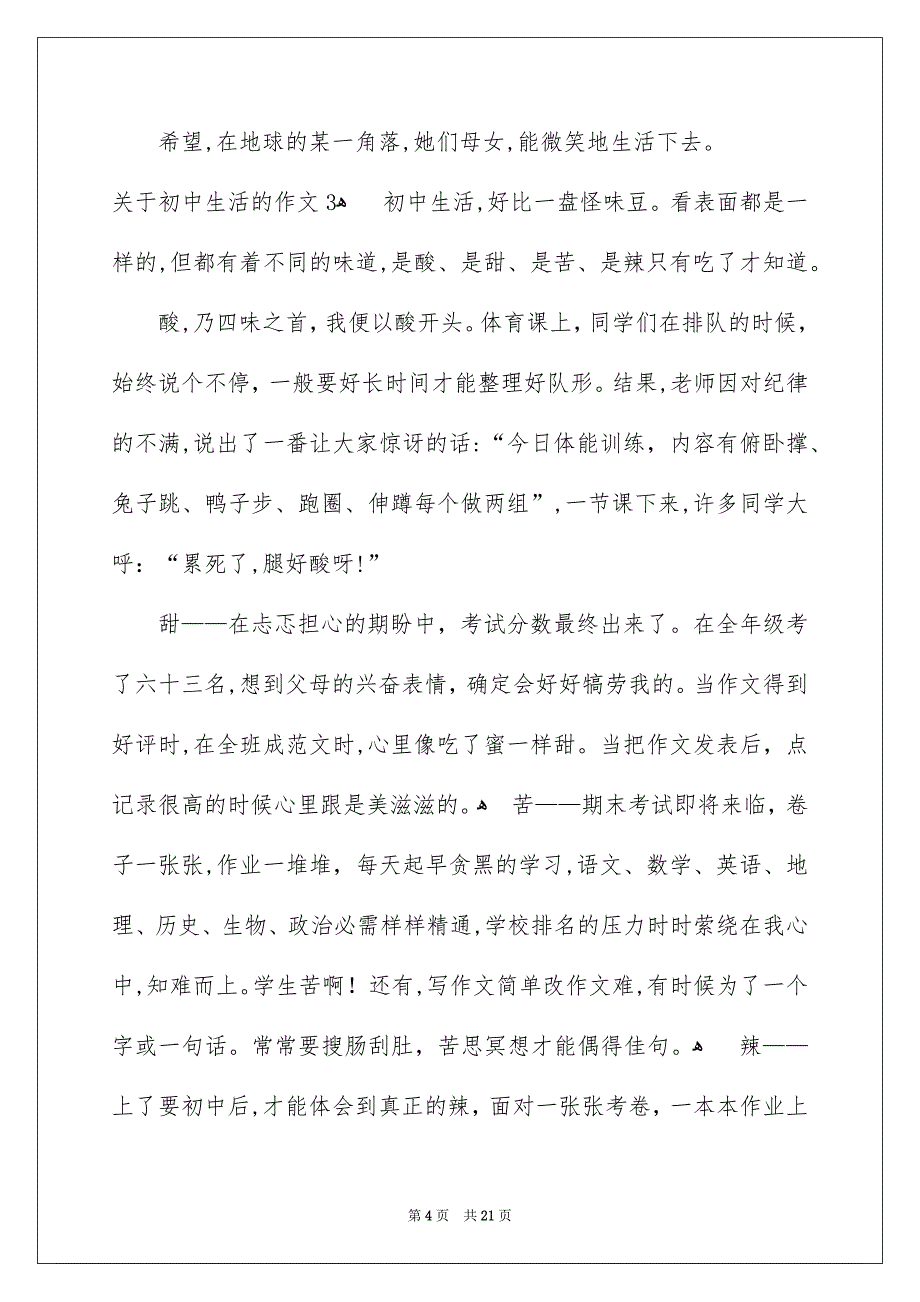 希望,在地球的某一角落,她们母女,能微笑地生活下去。
关于初中生活的作文3ﻫ 初中生活,好比一盘怪味豆。看表面都是一
样的,但都有着不同的味道,是酸、是甜、是苦、是辣只有吃了才知道。
酸,乃四味之首，我便以酸开头。体育课上，同学们在排队的时候，
始终说个不停，一般要好长时间才能整理好队形。结果,老师因对纪律
的不满,说出了一番让大家惊讶的话:“今日体能训练，内容有俯卧撑、
兔子跳、鸭子步、跑圈、伸蹲每个做两组”,一节课下来,许多同学大
呼：“累死了,腿好酸呀!”
甜——在忐忑担心的期盼中，考试分数最终出来了。在全年级考
了六十三名,想到父母的兴奋表情，确定会好好犒劳我的。当作文得到
好评时,在全班成范文时,心里像吃了蜜一样甜。当把作文发表后，点
记录很高的时候心里跟是美滋滋的。ﻫ 苦——期末考试即将来临，卷
子一张张,作业一堆堆，每天起早贪黑的学习,语文、数学、英语、地
理、历史、生物、政治必需样样精通,学校排名的压力时时萦绕在我心
中,知难而上。学生苦啊！还有,写作文简单改作文难,有时候为了一个
字或一句话。常常要搜肠刮肚，苦思冥想才能偶得佳句。ﻫ 辣——
上了要初中后,才能体会到真正的辣，面对一张张考卷，一本本作业上
第 4 页 共 21 页